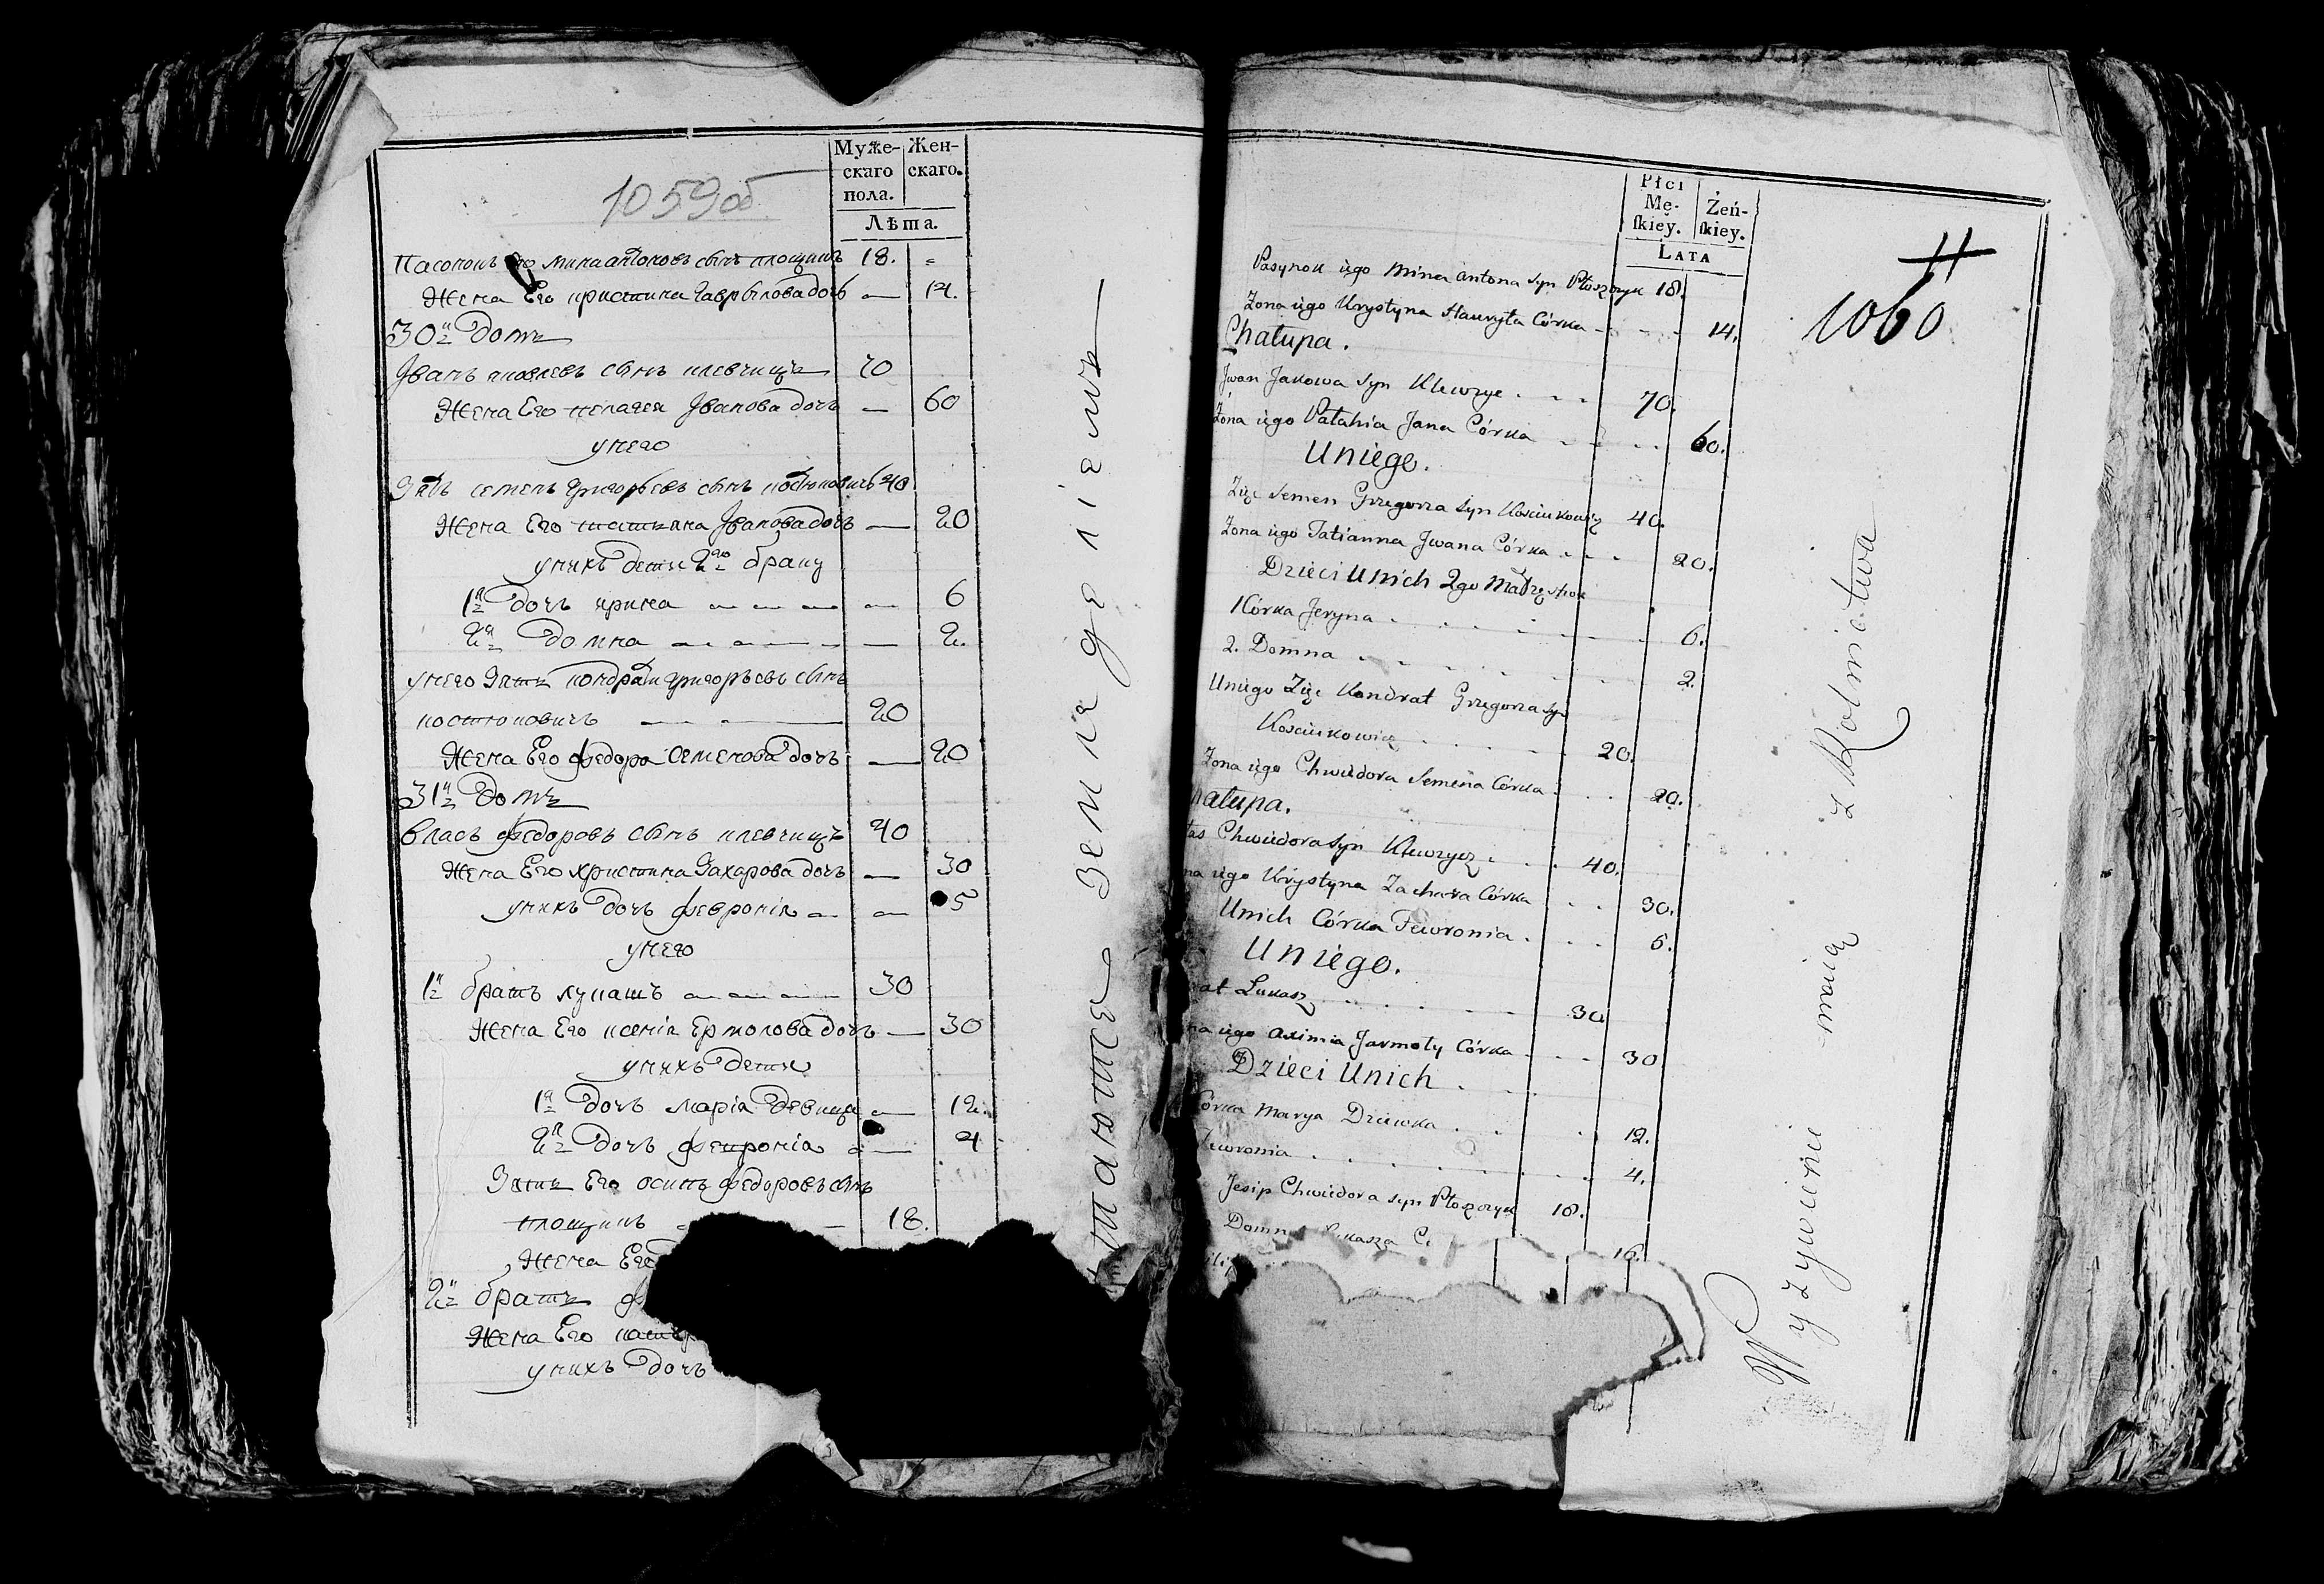 Муже-
скаго
пола.
Жен-
скаго.
Лѣта.
1059об
Пасонокъ его мина антоновъ сынъ площикъ 18.
Жена Его кристина Гаврылова дочь — 14.
30й Домъ
Іванъ яковлевъ сынъ клевчищъ 70
Жена Его пелагея Іванова дочь — 60
унего
Зять семенъ григорьевъ сынъ костюковичъ 40
Жена Его татьяна Іванова дочь — 20
унихъ дети 2го браку
1я Дочь ирина — 6
2я Домна — 2.
унего Зять кондрат григорьевъ сынъ
костюковичъ — 20
Жена Его федора семенова дочь — 20
31й Домъ
Власъ федоровъ сынъ клевчищъ 40
Жена Его христина Захарова дочь — 30
унихъ дочь февронія — 5
унего
1й братъ лукашъ — 30
Жена Его ксенія Ермолова дочь — 30
унихъ дети
1я дочь марія девица — 12.
2я дочь февронія — 4
Зять Его осипъ федоровъ сынъ
площикъ — 18.
Жена Его
2й братъ
Жена Его
унихъ дочь
Płci
Mę-
ſkiey.
Żeń-
ſkiey.
Lata
1060
Pasynok iego Mina Antona Syn Płoszczyk 18.
Żona iego Krystyna Hawryła Córka - - - 14.
Chałupa.
Jwan Jakowa Syn Klewzye . . . 70.
Żona iego Pałahia Jana Córka . . . 60.
Uniego.
Zięc Semen Grzegorza Syn Kosciukowicz 40.
Żona iego Tatianna Jwana Córka . . . 20.
Dzieci Unich 2go Małżeństwa
1 Córka Jeryna . . . 6.
2. Domna . . . 2.
Uniego Zięc Kondrat Grzegorza Syn
Kosciukowicz . . . 20.
Żona iego Chwiedora Semena Córka . . . 20.
hałupa.
łas Chwiedora Syn Klewzycz . . . 40.
na iego Krystyna Zachara Córka . . . 30.
Unich Córka Fewronia . . . 5.
Uniego.
rat Łukasz . . . 30
na iego Axinia Jarmoły Córka . . . 30
Dzieci Unich .
Córka Marya Dziewka . . . 12.
Fewronia . . . 4.
Jesip Chwiedora syn Płoszczyk 18.
Domn 16.
Wyzywienie maią z Rolnictwa